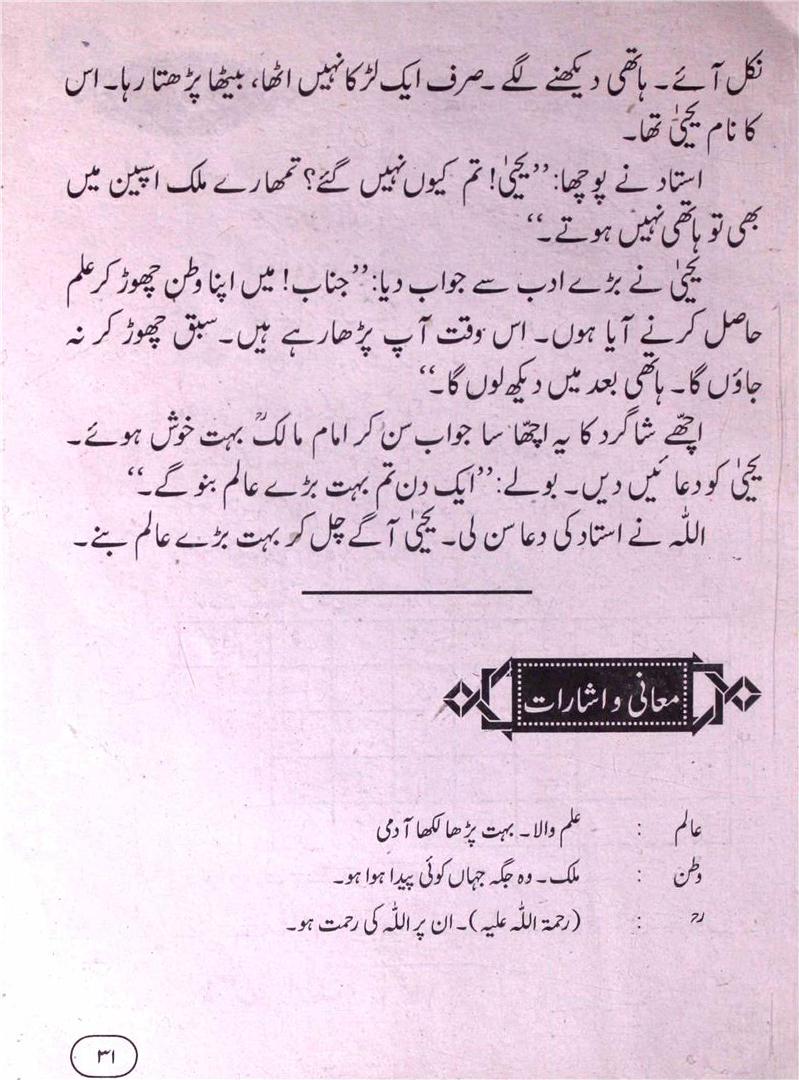 نکل آئے۔ ہاتھی دیکھنے لگے۔ صرف ایک لڑکا نہیں اٹھا، بیٹھا پڑھتا رہا۔ اس
کا نام یحییٰ تھا۔
استاد نے پوچھا: ’’یحییٰ! تم کیوں نہیں گئے؟ تمھارے ملک اسپین میں
بھی تو ہاتھی نہیں ہوتے۔‘‘
یحییٰ نے بڑے ادب سے جواب دیا: ’’جناب! میں اپنا وطن چھوڑ کر علم
حاصل کرنے آیا ہوں۔ اس وقت آپ پڑھا رہے ہیں۔ سبق چھوڑ کر نہ
جاؤں گا۔ ہاتھی بعد میں دیکھ لوں گا۔‘‘
اچھّے شاگرد کا یہ اچھّا سا جواب سن کر امام مالکؒ بہت خوش ہوئے۔
یحییٰ کو دعائیں دیں۔ بولے: ’’ایک دن تم بہت بڑے عالم بنو گے۔‘‘
اللہ نے استاد کی دعا سن لی۔ یحییٰ آگے چل کر بہت بڑے عالم بنے۔
معانی و اشارات
عالم : علم والا۔ بہت پڑھا لکھا آدمی
وطن : ملک۔ وہ جگہ جہاں کوئی پیدا ہوا ہو۔
رح : (رحمۃ اللہ علیہ)۔ ان پر اللہ کی رحمت ہو۔
۳۱